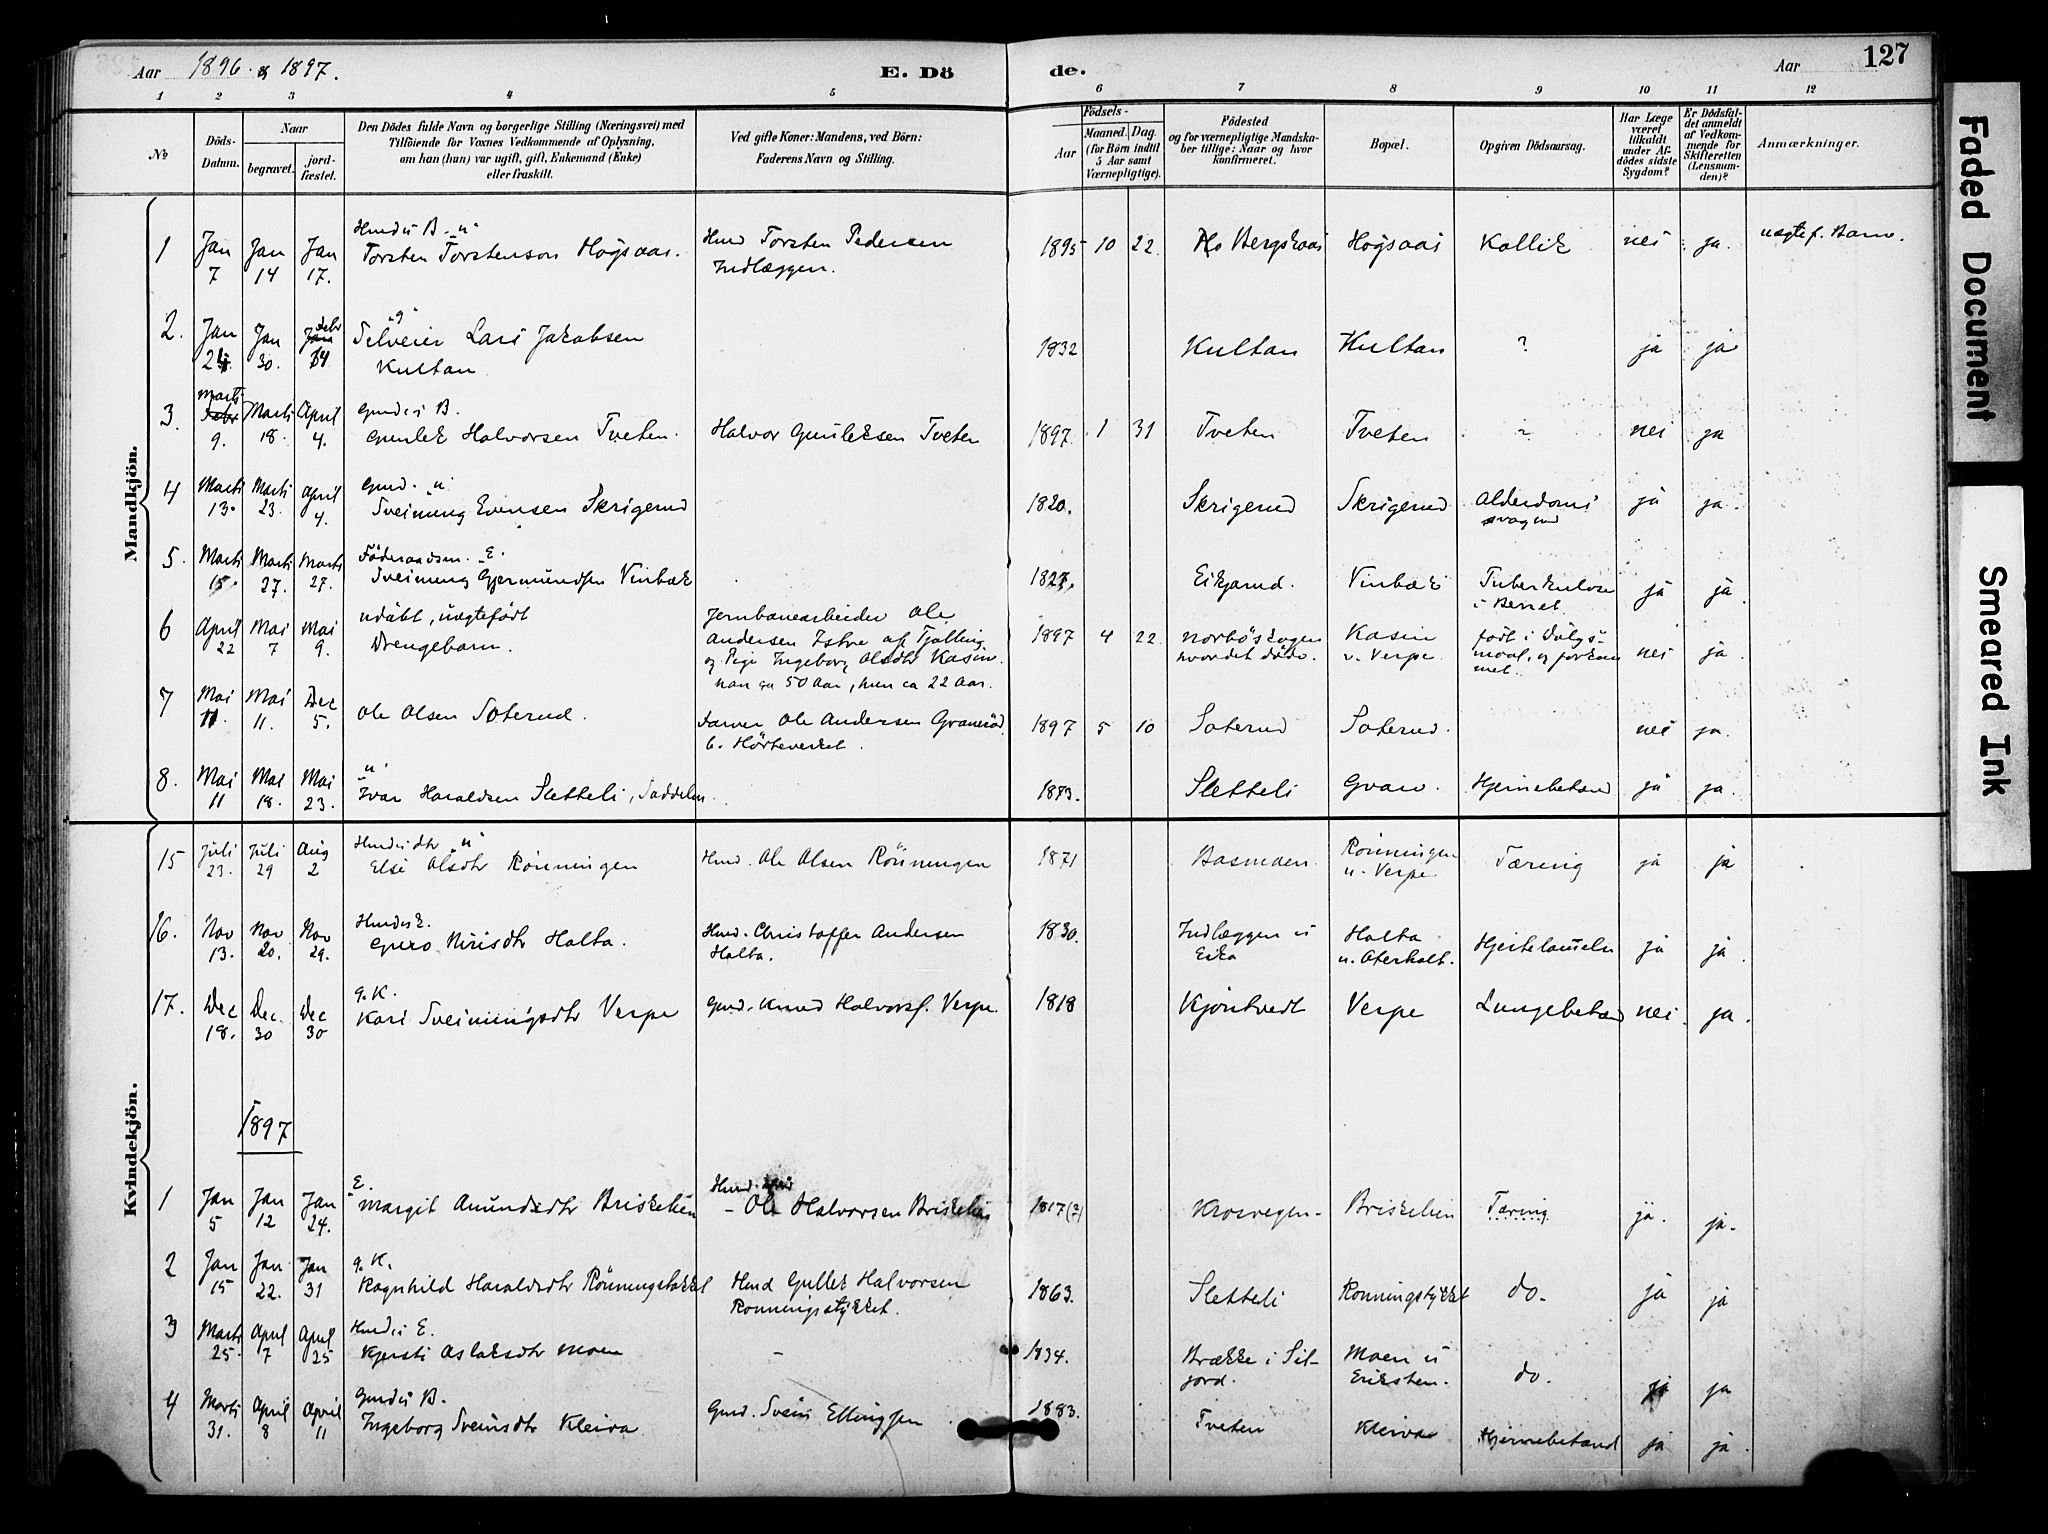 Aar 1896 & 1897. E. Dö de. Aar 127
1 2 3 4 5 6 7 8 9 10 11 12
No
Döds-Datum.
Naar
begravet.
jord-fæstet.
Den Dödes fulde Navn og borgerlige Stilling (Næringsvei) med
Tilföiende for Voxnes Vedkommende af Oplysning,
om han (hun) var ugift, gift, Enkemand (Enke)
eller fraskilt.
Ved gifte Koner: Mandens, ved Börn:
Faderens Navn og Stilling.
Födsels-
Aar
Maaned. Dag.
(for Börn indtil
5 Aar samt
Værnepligtige).
Födested
og for værnepligtige Mandska-
ber tillige: Naar og hvor
konfirmeret.
Bopæl.
Opgiven Dödsaarsag.
Har Læge
været
tilkaldt
under Af-
dödes sidste
Sygdom?
Er Dödsfal-
det anmeldt
af Vedkom-
mende for
Skifteretten
(Lensman-
den)?
Anmærkninger.
Mandkjön.
1 Jan 7 Jan 14 Jan 17. Husds B. u. Torsten Torstenson Högsaas. Husmd Torsten Pedersen Indlæggen. 1895 10 22. Bergskaas Högsaas Kollik nei ja. uægtef. Barn.
2. Jan 24. Jan 30. Febr 14 g Selveier Lars Jakobsen Kultan 1832 Kultan Kultan ? ja ja
3. Marts 9. Marts 18. April 4. Gmds B. Gunlek Halvorsen Tveten. Halvor Gunleksen Tveten 1897. 1 31 Tveten Tveten ? nei ja
4 Marts 13. Marts 23. April 4. Gmd. u. Sveinung Evensen Skrigerud 1820. Skrigerud Skrigerud Alderdoms svaghed ja ja.
5. Marts 15. Marts 27. Marts 27. Föderaadsm. E. Sveinung Gjermundsen Vinbæk 1827. Eikjarud. Vinbæk Tuberkulose i Benet. ja ja.
6 April 22 Mai 7 Mai 9. udöbt, uægtefödt Drengebarn. Jernbanearbeider Ole Andersen Istre af Tjölling og Pige Ingeborg Olsdtr Kasin. han ca 50 Aar, hun ca 22 Aar. 1897 4 22 Norböskogen hvor det döde. Kasin u. Verpe. födt i Dölgsmaal, og forkommet. nei ja.
7 Mai 11. Mai 11. Dec 5. Ole Olsen Soterud. Farver Ole Andersen Graneröd b. Hörteverket. 1897 5 10 Soterud Soterud. nei ja.
8. Mai 11 Mai 18. Mai 23. u. Ivar Haraldsen Sletteli, Saddelm. 1873. Sletteli Gvarv. Hjernebetænd ja ja.
Kvindekjön.
15 Juli 23. Juli 29 Aug 2 Husdsdtr u Else Olsdtr Rönningen Husmd. Ole Olsen Rönningen 1871 Basmoen Rönningen u. Verpe Tæring ja ja
16. Nov 13. Nov 20. Nov 29. Husds K. Guro Nirisdtr Holta. Husmd. Christoffer Andersen Holta. 1830. Indlæggen u Eika Holta u. Oterholt. Hjertelammelse ja ja.
17. Dec 18. Dec 30 Dec 30 g. K. Kari Sveinungsdtr Verpe Gmd. Knud Halvors. Verpe. 1818 Kjöntvedt Verpe Lungebetænd nei. ja.
1897
1 Jan 5 Jan 12 Jan 24. E. Margit Amundsdtr Briskelien Husmd. Ole Halvorsen Briskelien 1817(?) Krosvegen Briskelien Tæring ja. ja.
2 Jan 15 Jan 22. Jan 31 g. K. Ragnhild Haraldsdtr Rönningstökket Husmd Gullek Halvorsen Ronningstykket. 1863. Sletteli Ronningstykket do. ja ja
3 Marts 25. April 7 April 25 Husds E. Kjersti Aslaksdtr Moen - 1834. Brække i Siljord. Moen u Eriksten. do. ja ja
4 Marts 31. April 8 April 11 Gmds B. Ingeborg Sveinsdtr Kleiva Gmd. Svein Ellingsen 1883. Tveten Kleiva Hjernebetænd ja ja.
Faded Document
Smeared Ink